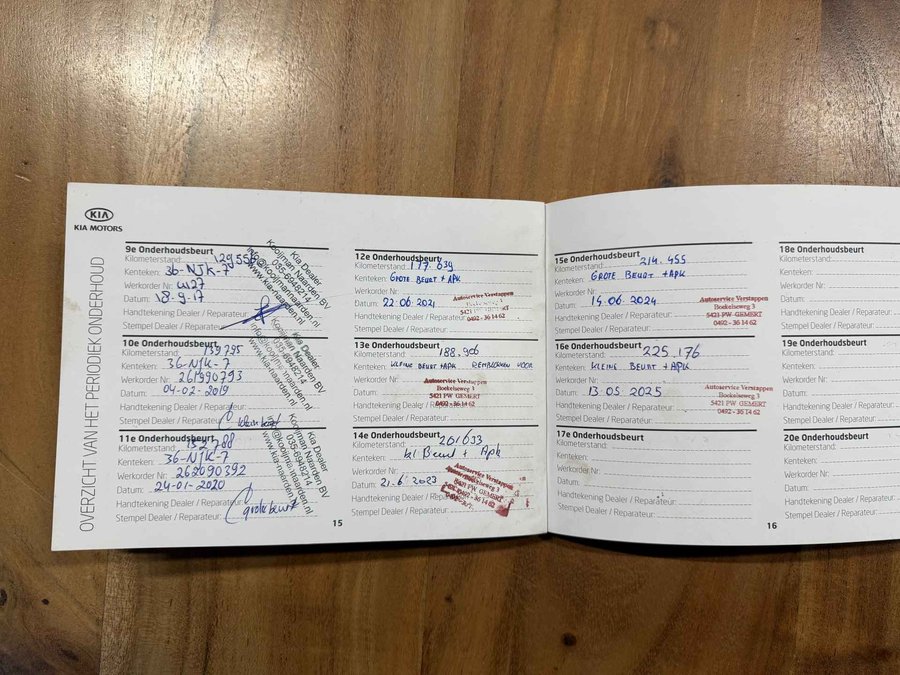 KIA
KIA MOTORS
OVERZICHT VAN HET PERIODIEK ONDERHOUD
9e Onderhoudsbeurt
Kilometerstand: 129556
Kenteken: 36-NJK-7
Werkorder Nr: W27
Datum: 18-9-17
Handtekening Dealer / Reparateur:
Stempel Dealer / Reparateur:
Kia Dealer
Kooijman Naarden BV
035-6948214
info@kooijmannaarden.nl
www.kia-naarden.nl
10e Onderhoudsbeurt
Kilometerstand: 139795
Kenteken: 36-NJK-7
Werkorder Nr: 261990793
Datum: 04-02-2019
Handtekening Dealer / Reparateur:
Stempel Dealer / Reparateur:
Kia Dealer
Kooijman Naarden BV
035-6948214
info@kooijmannaarden.nl
www.kia-naarden.nl
11e Onderhoudsbeurt
Kilometerstand: 152788
Kenteken: 36-NJK-7
Werkorder Nr: 262090392
Datum: 24-01-2020
Handtekening Dealer / Reparateur:
grote beurt
Stempel Dealer / Reparateur:
Kia Dealer
Kooijman Naarden BV
035-6948214
info@kooijmannaarden.nl
www.kia-naarden.nl
15
12e Onderhoudsbeurt
Kilometerstand: 177.639
Kenteken: GROTE BEURT + APK
Werkorder Nr:
Datum: 22.06.2021
Handtekening Dealer / Reparateur:
Stempel Dealer / Reparateur:
Autoservice Verstappen
5421 PW GEMERT
0492 - 36 14 62
13e Onderhoudsbeurt
Kilometerstand: 188.906
Kenteken: KLEINE BEURT + APK REMBLOKKEN VOOR
Werkorder Nr:
Datum:
Handtekening Dealer / Reparateur:
Stempel Dealer / Reparateur:
Autoservice Verstappen
Boekelseweg 3
5421 PW GEMERT
0492 - 36 14 62
14e Onderhoudsbeurt
Kilometerstand: 201633
Kenteken: kl Beurt + Apk
Werkorder Nr:
Datum: 21.6.2023
Handtekening Dealer / Reparateur:
Stempel Dealer / Reparateur:
Autoservice Verstappen
Boekelseweg 3
5421 PW GEMERT
15e Onderhoudsbeurt
Kilometerstand: 214.455
Kenteken: GROTE BEURT + APK
Werkorder Nr:
Datum: 14.06.2024
Handtekening Dealer / Reparateur:
Stempel Dealer / Reparateur:
Autoservice Verstappen
Boekelseweg 3
5421 PW GEMERT
0492 - 36 14 62
16e Onderhoudsbeurt
Kilometerstand: 225.176
Kenteken: KLEINE BEURT + APK
Werkorder Nr:
Datum: 13.05 2025
Handtekening Dealer / Reparateur:
Stempel Dealer / Reparateur:
Autoservice Verstappen
Boekelseweg 3
5421 PW GEMERT
0492 - 36 14 62
17e Onderhoudsbeurt
Kilometerstand:
Kenteken:
Werkorder Nr:
Datum:
Handtekening Dealer / Reparateur:
Stempel Dealer / Reparateur:
16
18e Onderhoudsbeurt
Kilometerstand:
Kenteken:
Werkorder Nr:
Datum:
Handtekening Dealer
Stempel Dealer / Rep
19e Onderhoudsbeurt
Kilometerstand:
Kenteken:
Werkorder Nr:
Datum:
Handtekening Dealer
Stempel Dealer / Rep
20e Onderhoudsbeurt
Kilometerstand:
Kenteken:
Werkorder Nr:
Datum:
Handtekening Dealer
Stempel Dealer / Rep